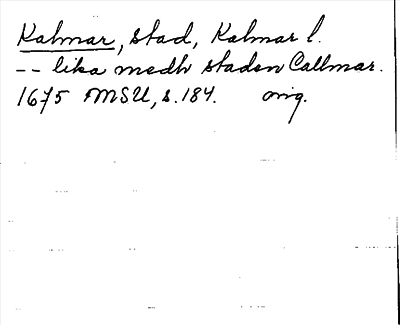 Kalmar, stad, Kalmar l.
-- lika medh staden Callmar.
1675 MSU, s. 184. orig.